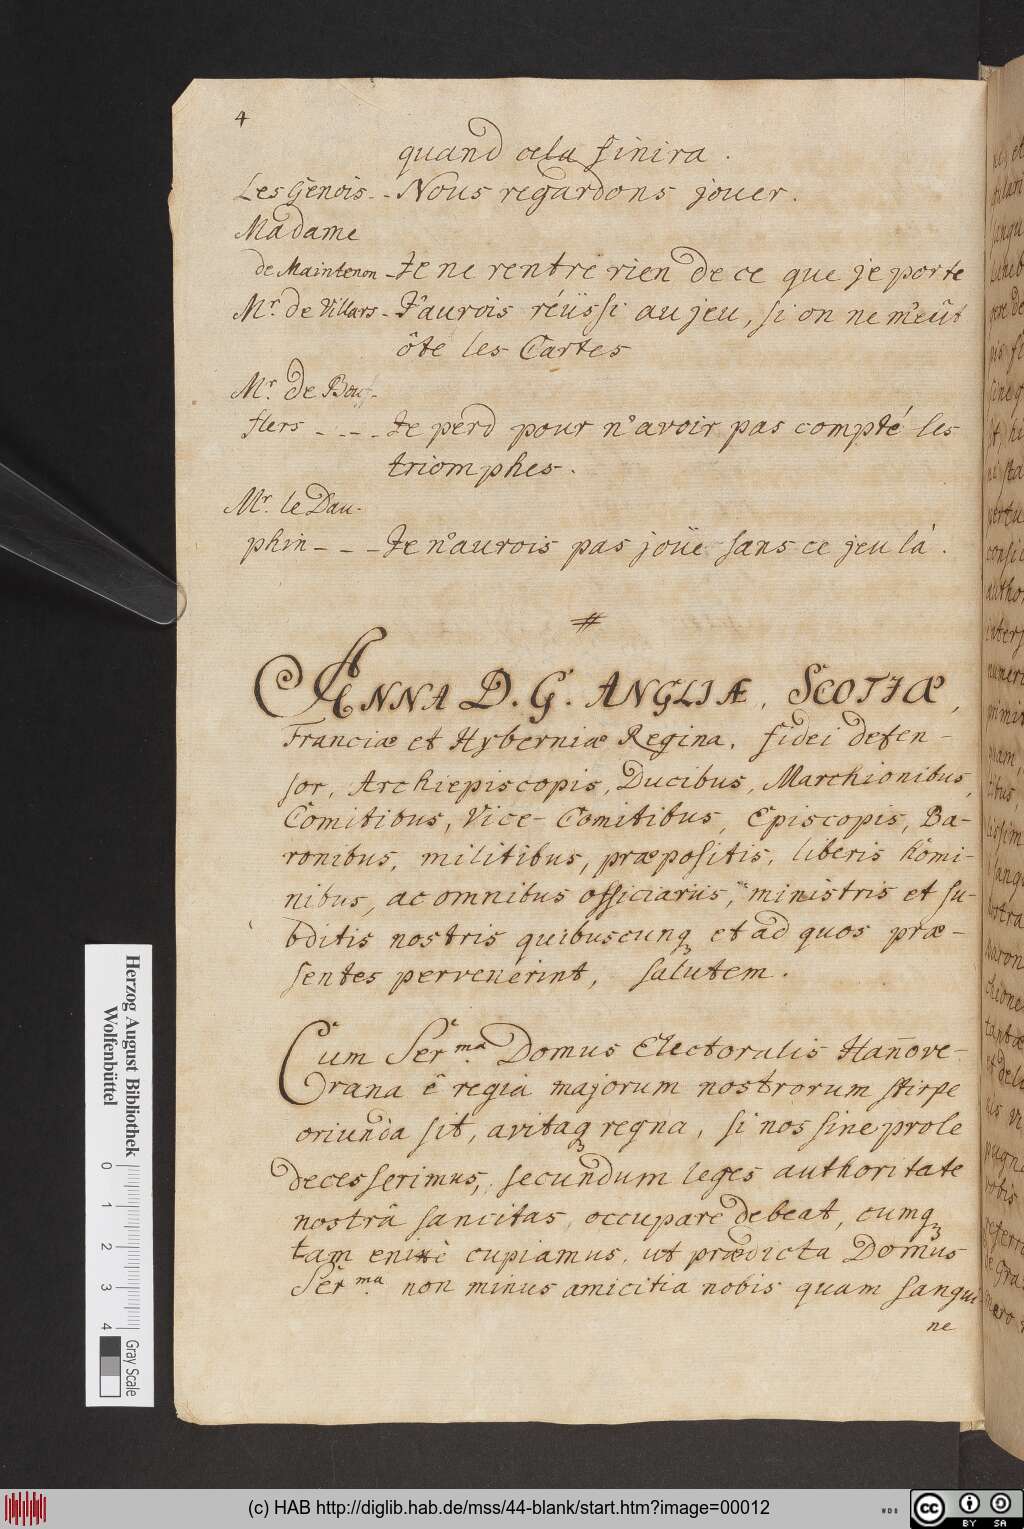 4
quand cela finira.
Les Genois - - Nous regardons jouer.
Madame
de Maintenon - Je ne rentre rien de ce que je porte
Mr. de Villars - J'aurois réüssi au jeu, si on ne m'eût
ôte les Cartes
Mr. de Bouf-
flers - - - Je perd pour n'avoir pas compté les
triomphes.
Mr. le Dau-
phin - - - Je n'aurois pas joüe sans ce jeu là.
#
ANNA D. G. ANGLIÆ, SCOTIÆ,
Franciæ et Hyberniæ Regina, fidei defen-
sor, Archiepiscopis, Ducibus, Marchionibus,
Comitibus, Vice-Comitibus, Episcopis, Ba-
ronibus, militibus, præpositis, liberis homi-
nibus, ac omnibus officiariis, ministris et su-
bditis nostris quibuscunq et ad quos præ-
sentes pervenerint, salutem.
Cum Ser.ma Domus Electoralis Hañove-
rana è regia majorum nostrorum stirpe
oriunda sit, avitaq regna, si nos sine prole
decesserimus, secundum leges authoritate
nostrâ sancitas, occupare debeat, cumq
tam enixè cupiamus, ut prædicta Domus
Ser.ma non minus amicitia nobis quam sangui
ne
Herzog August Bibliothek
Wolfenbüttel
0 1 2 3 4
Gray Scale
(c) HAB http://diglib.hab.de/mss/44-blank/start.htm?image=00012
WDB
cc
BY SA